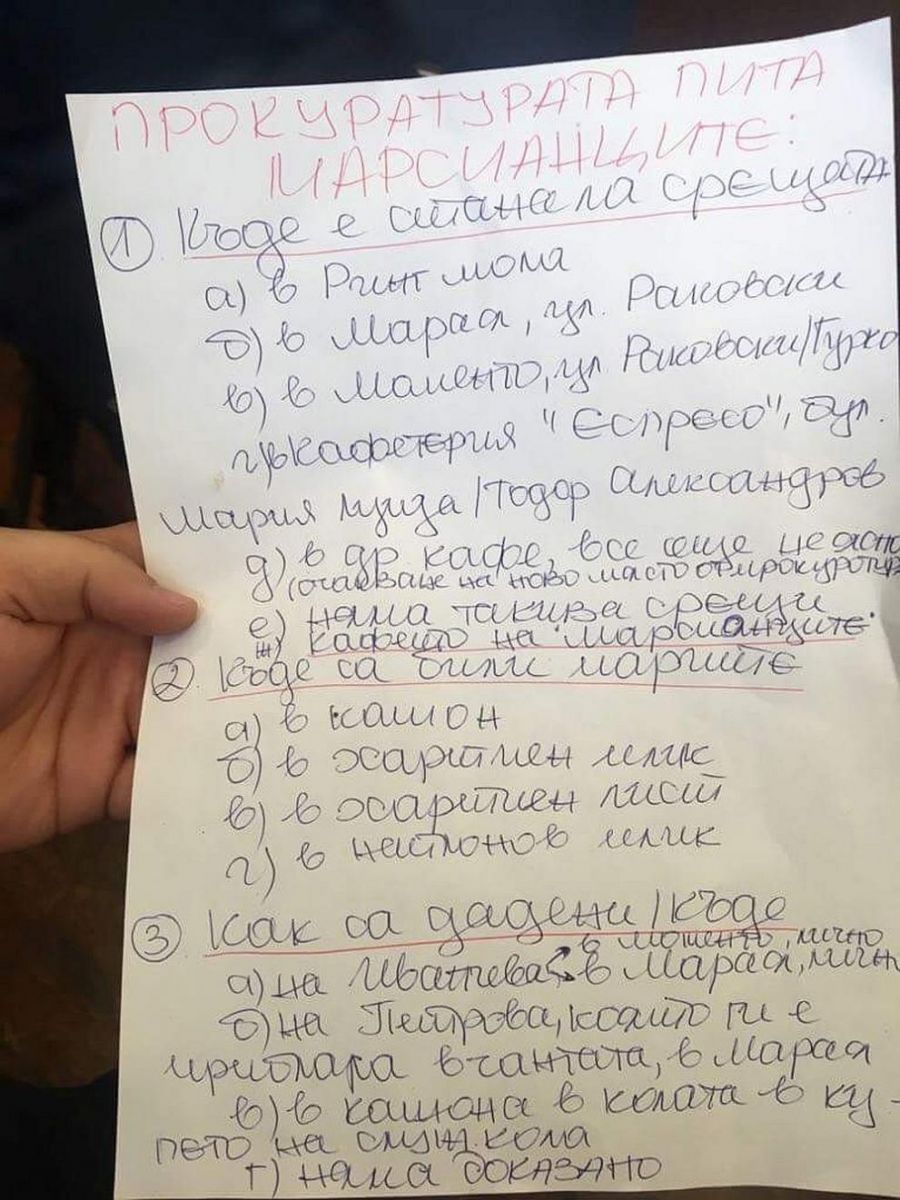 ПРОКУРАТУРАТА ПИТА
МАРСИАНЦИТЕ:
1 Къде е станала срещата
а) в Ринг мола
б) в Марая, ул. Раковски
в) в Моменто, ул Раковски/Гурко
г) в кафетерия "Еспресо", бул.
Мария Луиза/Тодор Александров
д) в др кафе, все още неясно
(очакване на ново място от прокурор
е) няма такива срещи
ж) кафето на марсианците
2. Къде са били парите
а) в кашон
б) в хартиен плик
в) в хартиен лист
г) в найлонов плик
3 Как са дадени/къде
в Моменто, лично
а) на Иванчева в Марая, лично
б) на Петрова, която ги е
прибрала в чантата, в Марая
в) в кашона в колата в ку-
пето на служ. кола
г) няма доказано